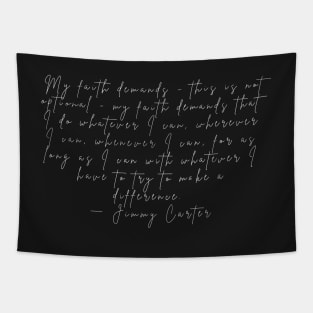 My faith demands - this is not
optional - my faith demands that
I do whatever I can, wherever
I can, whenever I can, for as
long as I can with whatever I
have to try to make a
difference.
— Jimmy Carter